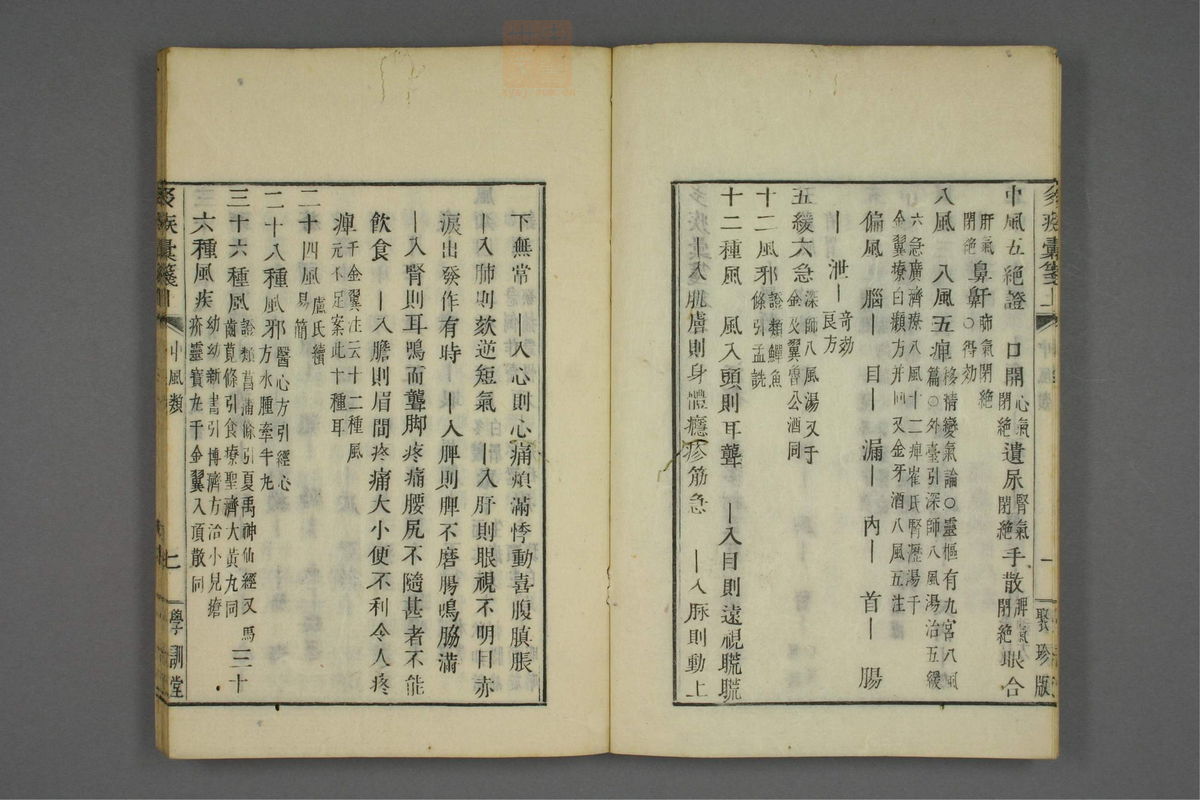 中風五絕證　口開心氣閉絕遺尿腎氣閉絕手散脾氣閉絕眼合
肝氣閉絕鼻鼾肺氣閉絕○得効
八風　八風五痺移精變氣論○靈樞有九宮八風篇○外臺引深師八風湯治五緩
六急廣濟療八風十二痺崔氏腎瀝湯于金翼療白癩方并同又金牙酒八風五注
偏風　腦｜　目｜　漏｜　內｜　首｜　腸
｜　泄｜奇効良方
五緩六急深師八風湯又于金及翼雷公酒同
十二風邪證類鱓魚條引孟詵
十二種風　風入頭則耳聾　｜入目則遠視䀮䀮
｜入肌膚則身體癮疹筋急　｜入脉則動上
下無常｜入心則心痛煩滿悸動喜腹䐜脹
｜入肺則欬逆短氣　｜入肝則眼視不明目赤
淚出發作有時｜入脾則脾不磨腸鳴脇滿
｜入腎則耳鳴而聾脚疼痛腰尻不隨甚者不能
飲食　｜入膽則眉間疼痛大小便不利令人疼
痺千金翼注云十二種風元不足案此十種耳
二十四風盧氏續易簡
二十八種風邪醫心方引經心方水腫牽牛丸
三十六種風證類菖蒲條引夏禹神仙經又馬齒莧條引食療聖濟大黃丸同三十
六種風疾幼幼新書引博濟方治小兒瘡疥靈寶丸千金翼入頂散同
多疾彙箋上
一
聚珍版
中風類
七
學訓堂